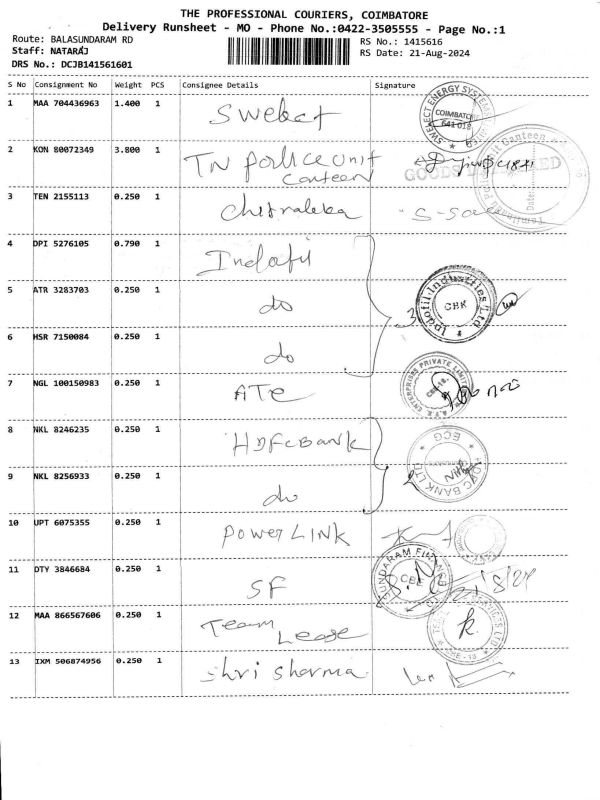 THE PROFESSIONAL COURIERS, COIMBATORE
Delivery Runsheet - MO - Phone No.:0422-3505555 - Page No.:1
Route: BALASUNDARAM RD
RS No.: 1415616
Staff: NATARAJ
RS Date: 21-Aug-2024
DRS No.: DCJB141561601
S No Consignment No Weight PCS Consignee Details Signature
1 MAA 704436963 1.400 1 Swelect
SWELECT ENERGY SYSTEMS
COIMBATORE
641 018
2 KON 80072349 3.800 1 TN Police unit
canteen
GOODS
3 TEN 2155113 0.250 1 Chitraleka
4 DPI 5276105 0.790 1 Indofil
5 ATR 3283703 0.250 1 do
3
Indofil Industries Ltd
CBK
6 HSR 7150084 0.250 1 do
7 NGL 100150983 0.250 1 ATE
ENTERPRISES PRIVATE LIMITED
8 NKL 8246235 0.250 1 HDFC BANK
HDFC BANK LTD
9 NKL 8256933 0.250 1 do
10 UPT 6075355 0.250 1 POWER LINK
11 DTY 3846684 0.250 1 SF
SUNDARAM FINANCE
CBE
12 MAA 866567606 0.250 1 Team
Lease
13 IXM 506874956 0.250 1 Shri Sharma